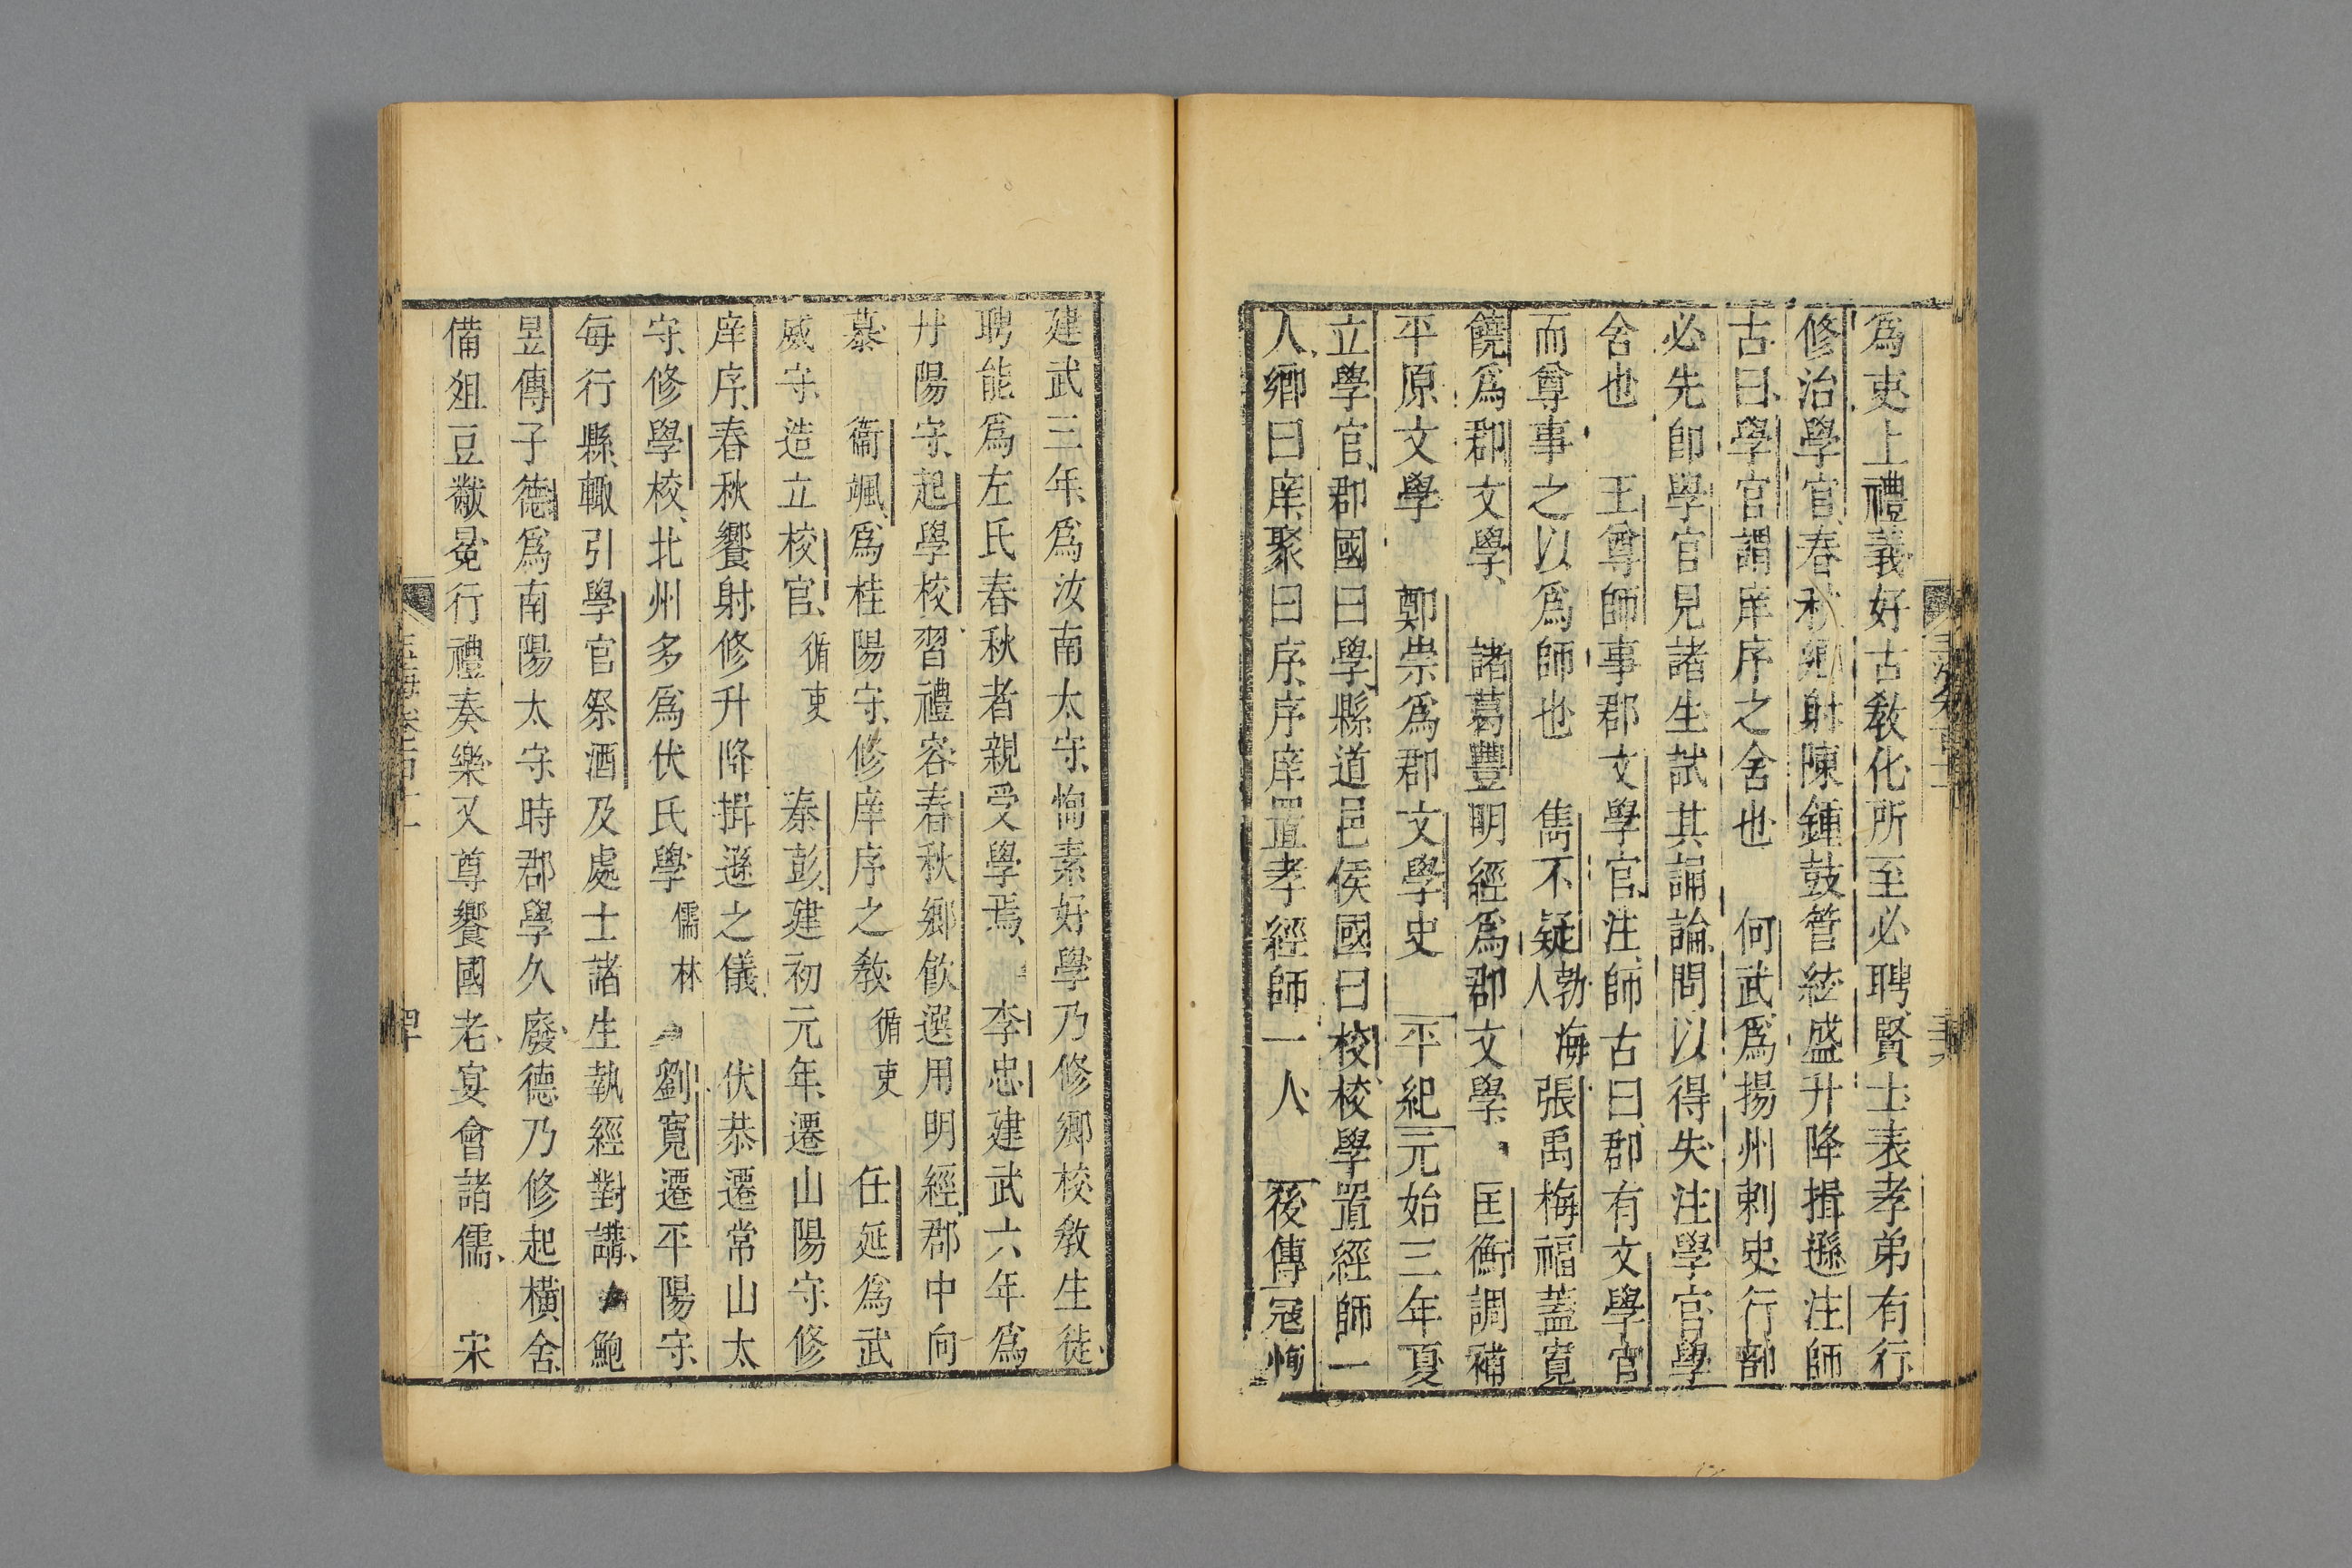 爲吏上禮義好古敎化所至必聘賢士表孝弟有行
修治學官春秋鄉射陳鍾鼓管絃盛升降揖遜注師
古曰學官謂庠序之舍也　何武爲揚州刺史行部
必先卽學官見諸生試其誦論問以得失注學官學
舍也　王尊師事郡文學官注師古曰郡有文學官
而尊事之以爲師也　雋不疑勃海人張禹梅福蓋寬
饒爲郡文學　諸葛豐明經爲郡文學　匡衡調補
平原文學　鄭崇爲郡文學史　平紀元始三年夏
立學官郡國曰學縣道邑侯國曰校校學置經師一
人鄉曰庠聚曰序序庠置孝經師一人　後傳寇恂
建武三年爲汝南太守恂素好學乃修鄉校敎生徒
聘能爲左氏春秋者親受學焉　李忠建武六年爲
丹陽守起學校習禮容春秋鄉飮選用明經郡中向
慕　衞颯爲桂陽守修庠序之敎循吏　任延爲武
威守造立校官循吏　秦彭建初元年遷山陽守修
庠序春秋饗射修升降揖遜之儀　伏恭遷常山太
守修學校北州多爲伏氏學儒林　劉寬遷平陽守
每行縣輙引學官祭酒及處士諸生執經對講　鮑
昱傳子德爲南陽太守時郡學久廢德乃修起橫舍
備俎豆黻冕行禮奏樂又尊饗國老宴會諸儒　宋